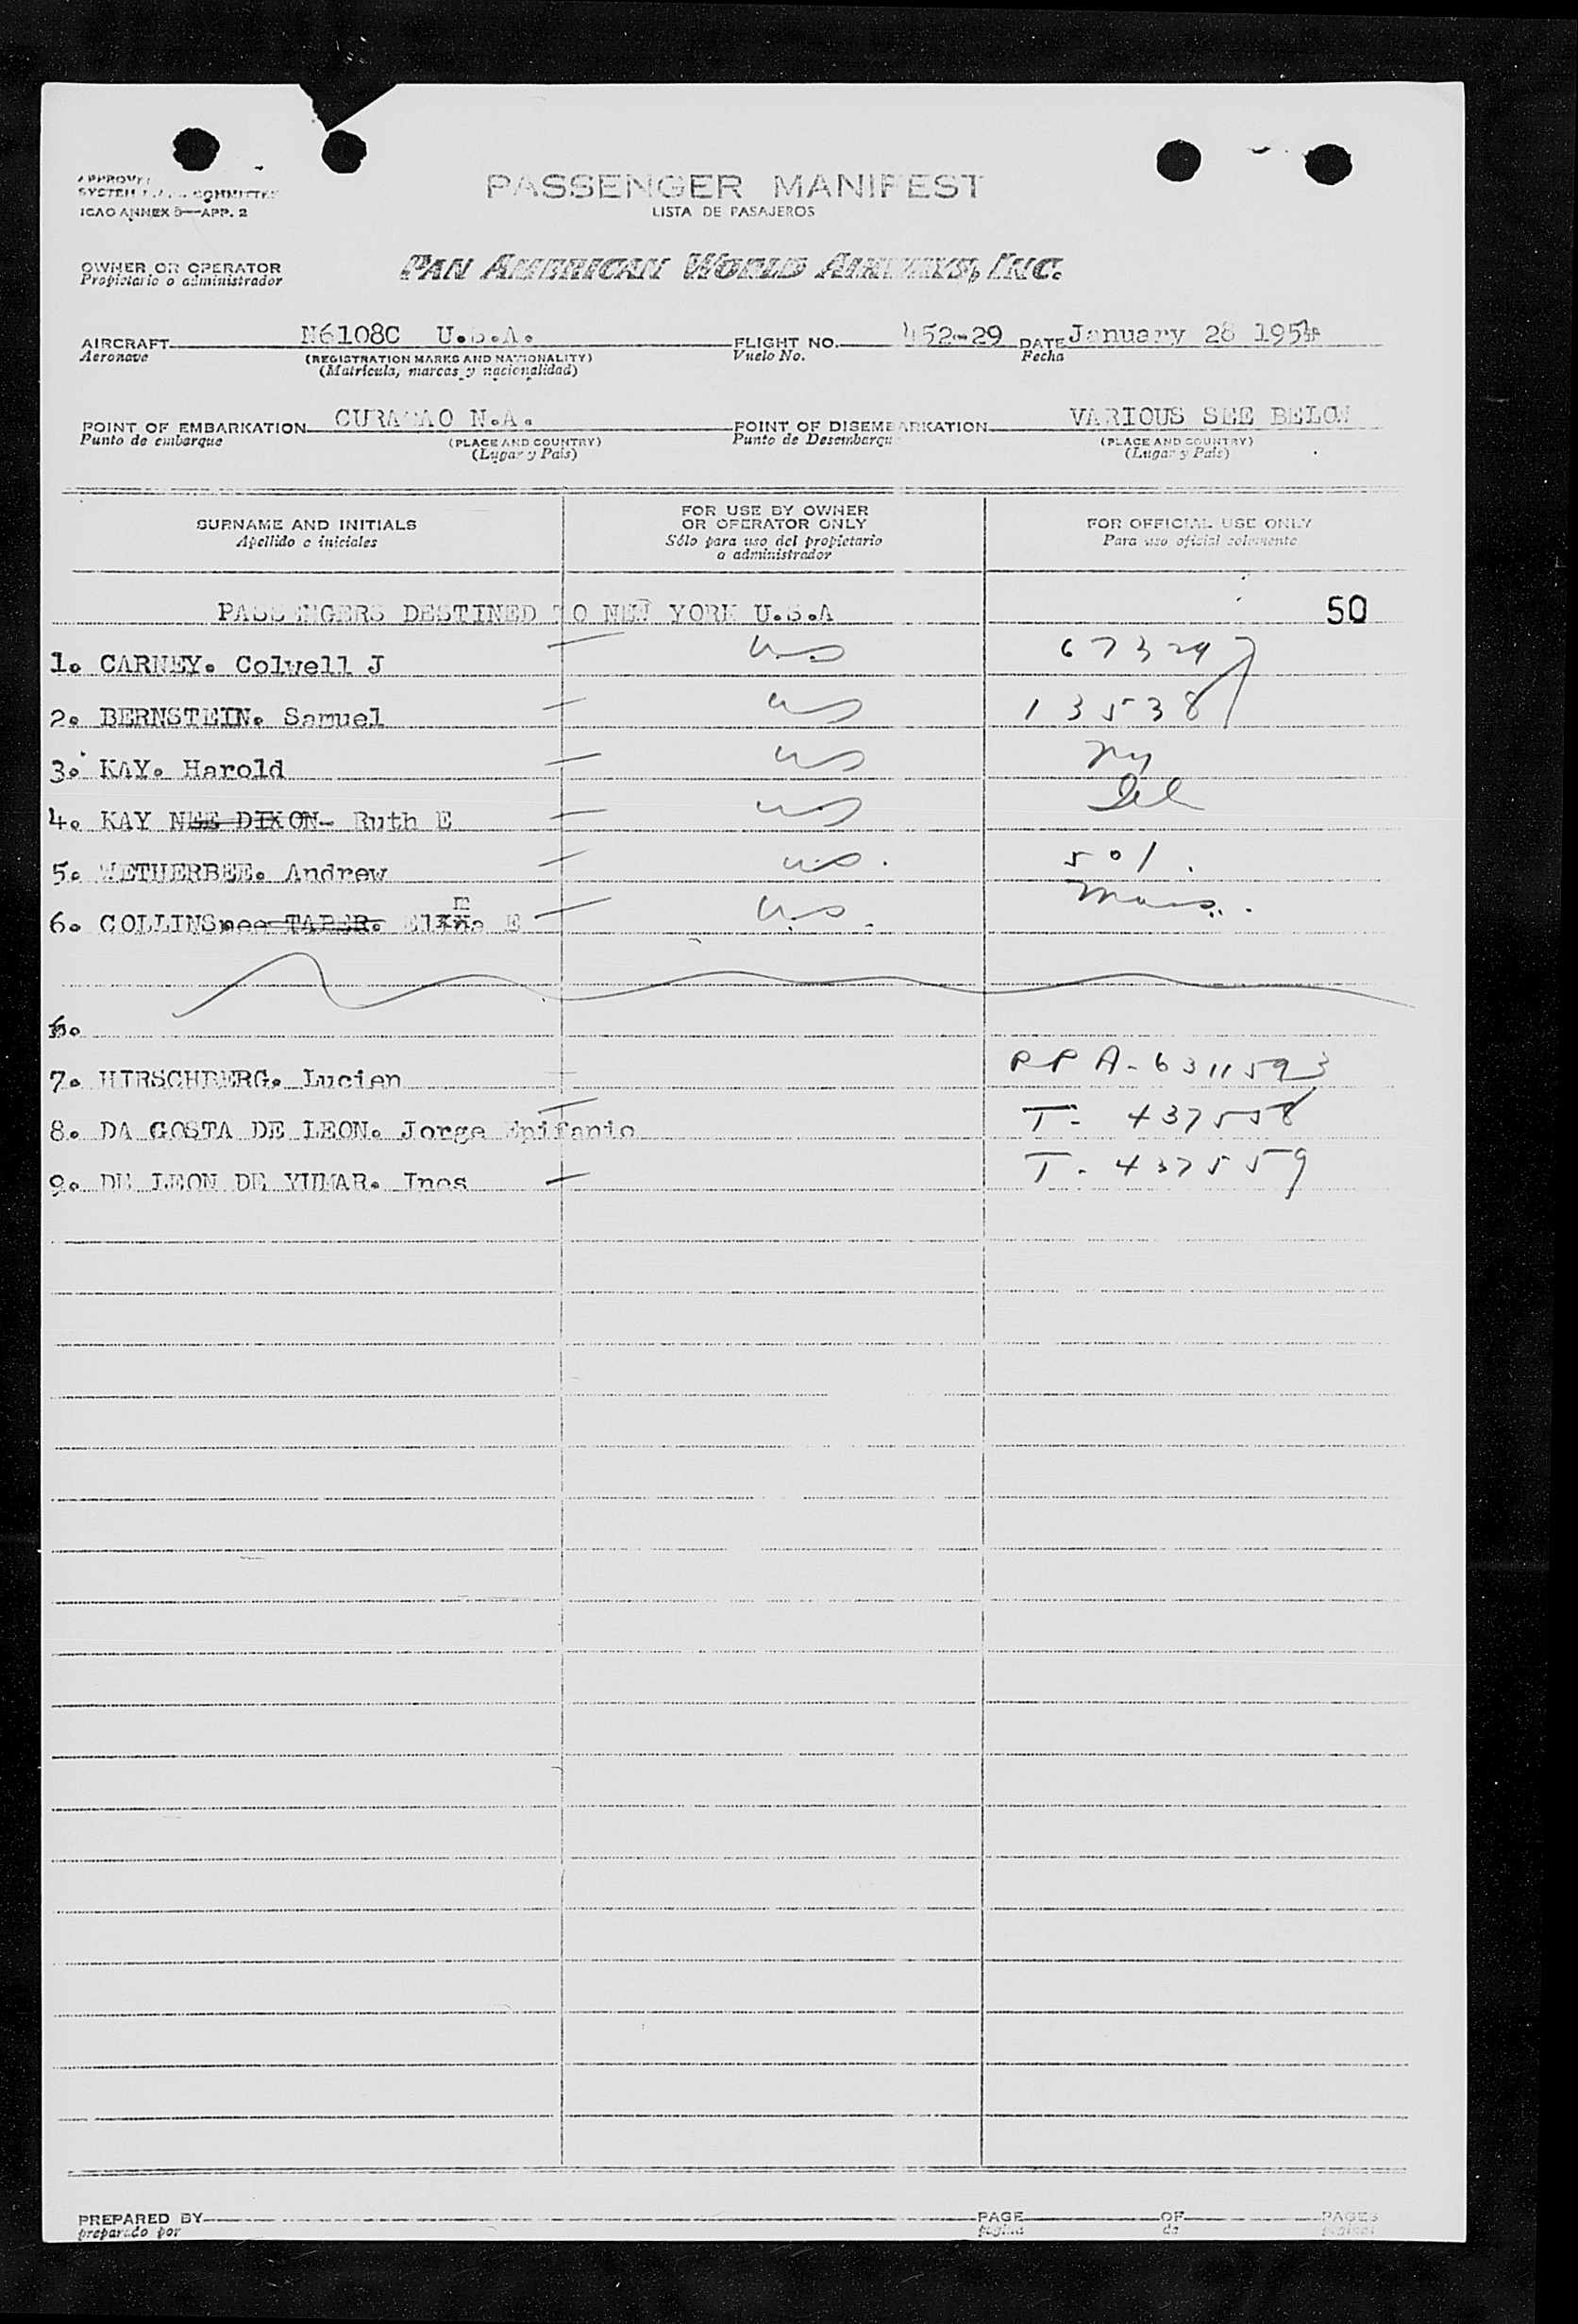 APPROVED
SYSTEM COMMITTEE
ICAO ANNEX 9—APP. 2
PASSENGER MANIFEST
LISTA DE PASAJEROS
OWNER OR OPERATOR
Propietario o administrador
PAN AMERICAN WORLD AIRWAYS, INC.
AIRCRAFT N6108C U.S.A. FLIGHT NO. 452-29 DATE January 28 1954
Aeronave (REGISTRATION MARKS AND NATIONALITY) Vuelo No. Fecha
(Matrícula, marcas y nacionalidad)
POINT OF EMBARKATION CURACAO N.A. POINT OF DISEMBARKATION VARIOUS SEE BELOW
Punto de embarque (PLACE AND COUNTRY) Punto de Desembarque (PLACE AND COUNTRY)
(Lugar y País) (Lugar y País)
SURNAME AND INITIALS FOR USE BY OWNER OR OPERATOR ONLY FOR OFFICIAL USE ONLY
Apellido e iniciales Sólo para uso del propietario o administrador Para uso oficial solamente
PASSENGERS DESTINED TO NEW YORK U.S.A 50
1. CARNEY. Colwell J — US 67329
2. BERNSTEIN. Samuel — US 13538
3. KAY. Harold — US NY
4. KAY NEE DIXON- Ruth E — US Del
5. WETHERBEE. Andrew — US. 501.
6. COLLINS nee TABER. Elma E — US. Mass.
6.
7. HIRSCHBERG. Lucien — PPA-6311593
8. DA COSTA DE LEON. Jorge Epifanio — T- 437558
9. DE LEON DE YUMAR. Ines — T- 437559
PREPARED BY PAGE OF PAGES
preparado por página de páginas